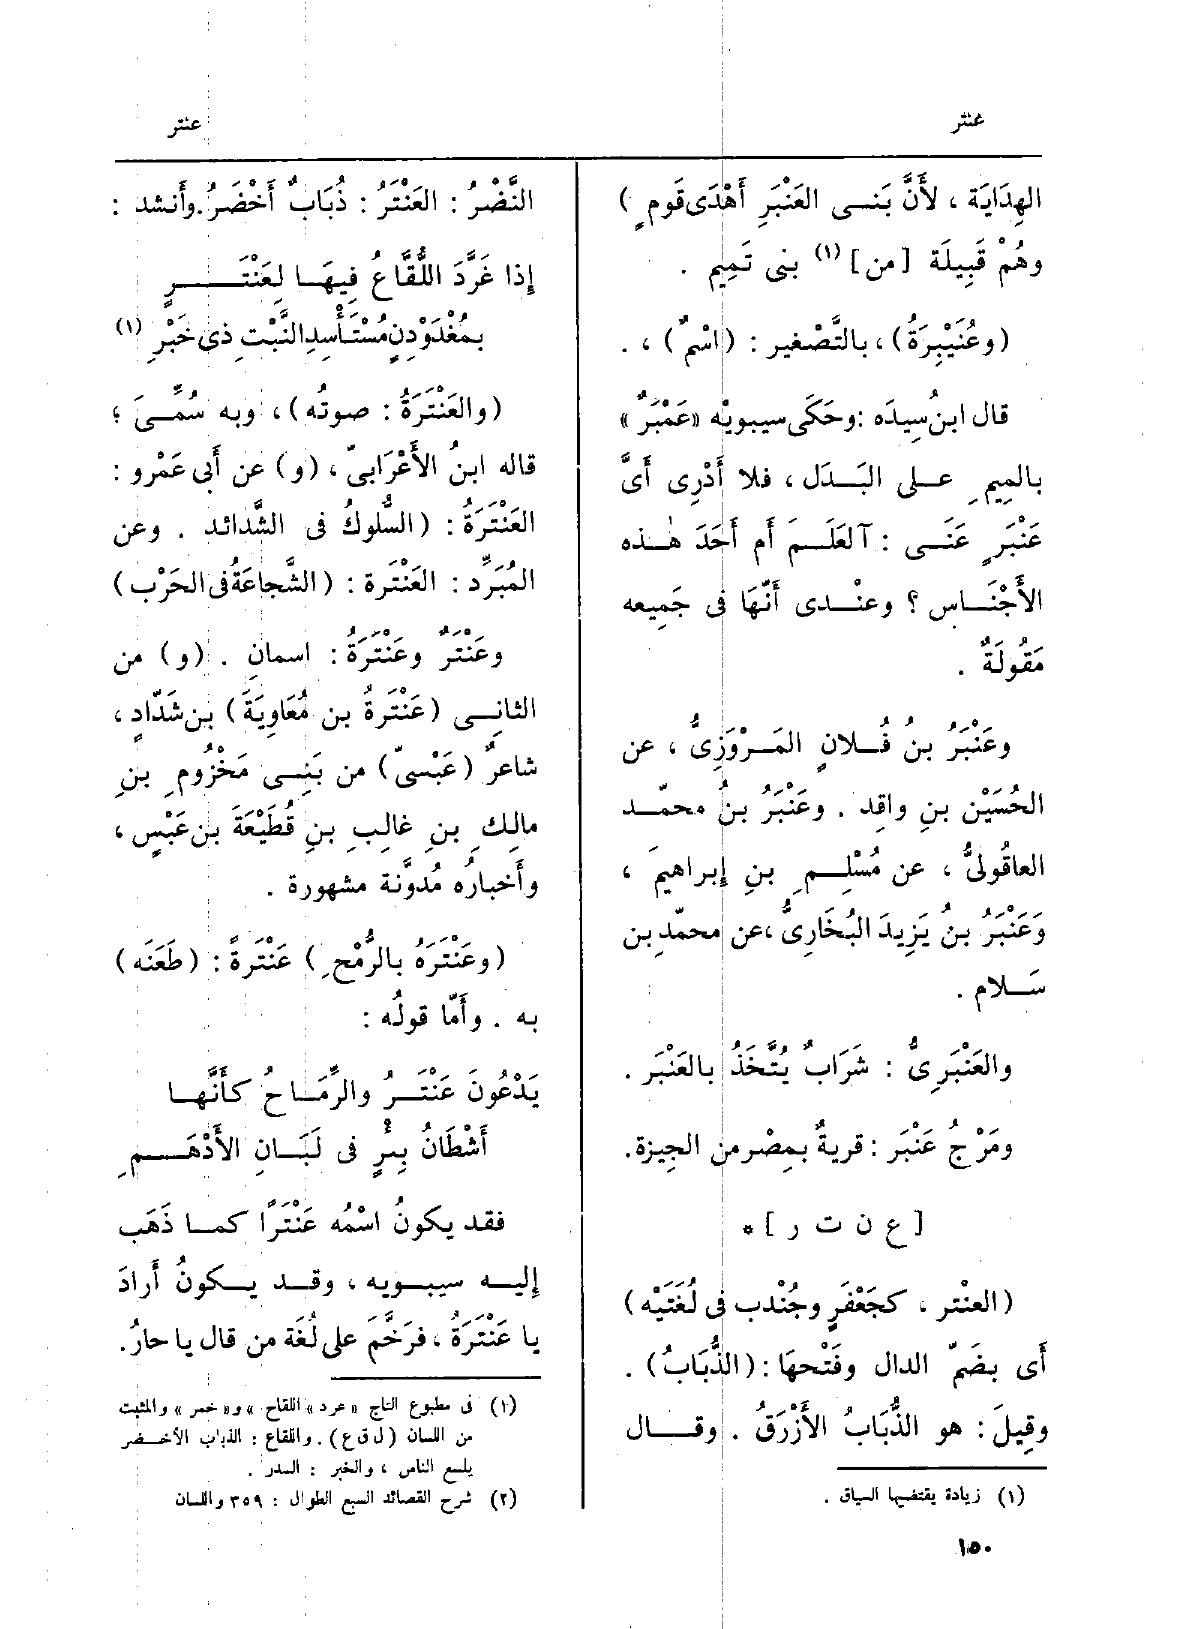 عنتر
عنتر
الهِدَايَة ، لأَنَّ بَنـى العَنْبَرِ أَهْدَى قَومٍ )
وهُمْ قَبِيلَة [من] (١) بنى تَمِيمٍ .
(وعُنَيْبِرَةُ) ، بالتَّصْغير : (اسْمٌ) ، .
قال ابنُ سِيدَه : وحَكَى سيبويْه «عَمْبَرٌ»
بالمِيمِ علـى البَـدَل ، فلا أَدْرِى أَىَّ
عَنْبَرٍ عَنَـى : آلعَلَـمَ أم أَحَدَ هٰـذه
الأَجْنَـاس ؟ وعنْـدى أَنَّهَا فى جَمِيعه
مَقُولَةٌ .
وعَنْبَرُ بنُ فُـلانٍ المَـرْوَزِىُّ ، عن
الحُسَيْن بنِ واقِد . وعَنْبَرُ بنُ محمّـد
العاقُولىُّ ، عن مُسْلِـمِ بنِ إبراهيمَ ،
وَعَنْبَرُ بنُ يَزِيدَ البُخَارِىُّ ، عن محمّدِ بن
سَـلام .
والعَنْبَرِىُّ : شَرَابٌ يُتَّخَذُ بالعَنْبَر .
ومَرْجُ عَنْبَر : قريةٌ بمِصْر من الجِيزة.
[ع ن ت ر] *
(العنْتر ، كجَعْفَرٍ وجُنْدب فى لُغَتَيْه)
أَى بضَمّ الدال وفَتْحهَا : (الذُّبَابُ) .
وقِيلَ : هو الذُّبَابُ الأَزْرَقُ . وقـال
(١) زيادة يقتضيها السياق .
النَّضْرُ : العَنْتَرُ : ذُبَابٌ أَخْضَرُ. وأَنشد :
إذا غَرَّدَ اللُّقَّاعُ فِيهَـا لِعَنْتَـــرٍ
بمُغْدَوْدِنٍ مُسْتَأْسِدِ النَّبْتِ ذى خَبْرِ (١)
(والعَنْتَرَةُ : صوتُه) ، وبه سُمِّـىَ ؛
قاله ابنُ الأَعْرَابىّ ، (و) عن أَبى عَمْرو :
العَنْتَرَةُ : (السُّلوكُ فى الشَّدائد . وعن
المُبَرِّد : العَنْتَرة : (الشَّجاعَةُ فى الحَرْب)
وعَنْتَرٌ وعَنْتَرَةُ : اسمانِ . (و) من
الثانِـى (عَنْتَرَةُ بن مُعَاوِيَةَ) بن شَدّادٍ ،
شاعرٌ (عَبْسىّ) من بَنِـى مَخْزُومِ بنِ
مالِكِ بنِ غالِبِ بنِ قُطَيْعَةَ بن عَبْسٍ ،
وأَخبارُه مُدَوَّنَة مشهورة .
(وعَنْتَرَهُ بالرُّمْح) عَنْتَرَةً : (طَعَنَه)
به . وأَمّا قولُه :
يَدْعُونَ عَنْتَـرُ والرِّمَـاحُ كأَنَّهـا
أَشْطَانُ بِئْرٍ فى لَبَـانِ الأَدْهَـمِ
فقد يكونُ اسْمُه عَنْتَرًا كمـا ذَهَب
إليـه سيبـويه ، وقـد يـكونُ أَرادَ
يا عَنْتَرَةُ ، فرَخَّمَ على لُغَة من قال يا حارُ.
(١) فى مطبوع التاج «عرد» اللقاح »و« خمر » والمثبت
من اللسان (لقع) . واللقاع : الذباب الأخـضر
يلسع الناس ، والخبر : السدر .
(٢) شرح القصائد السبع الطوال : ٣٥٩ واللسان
١٥٠